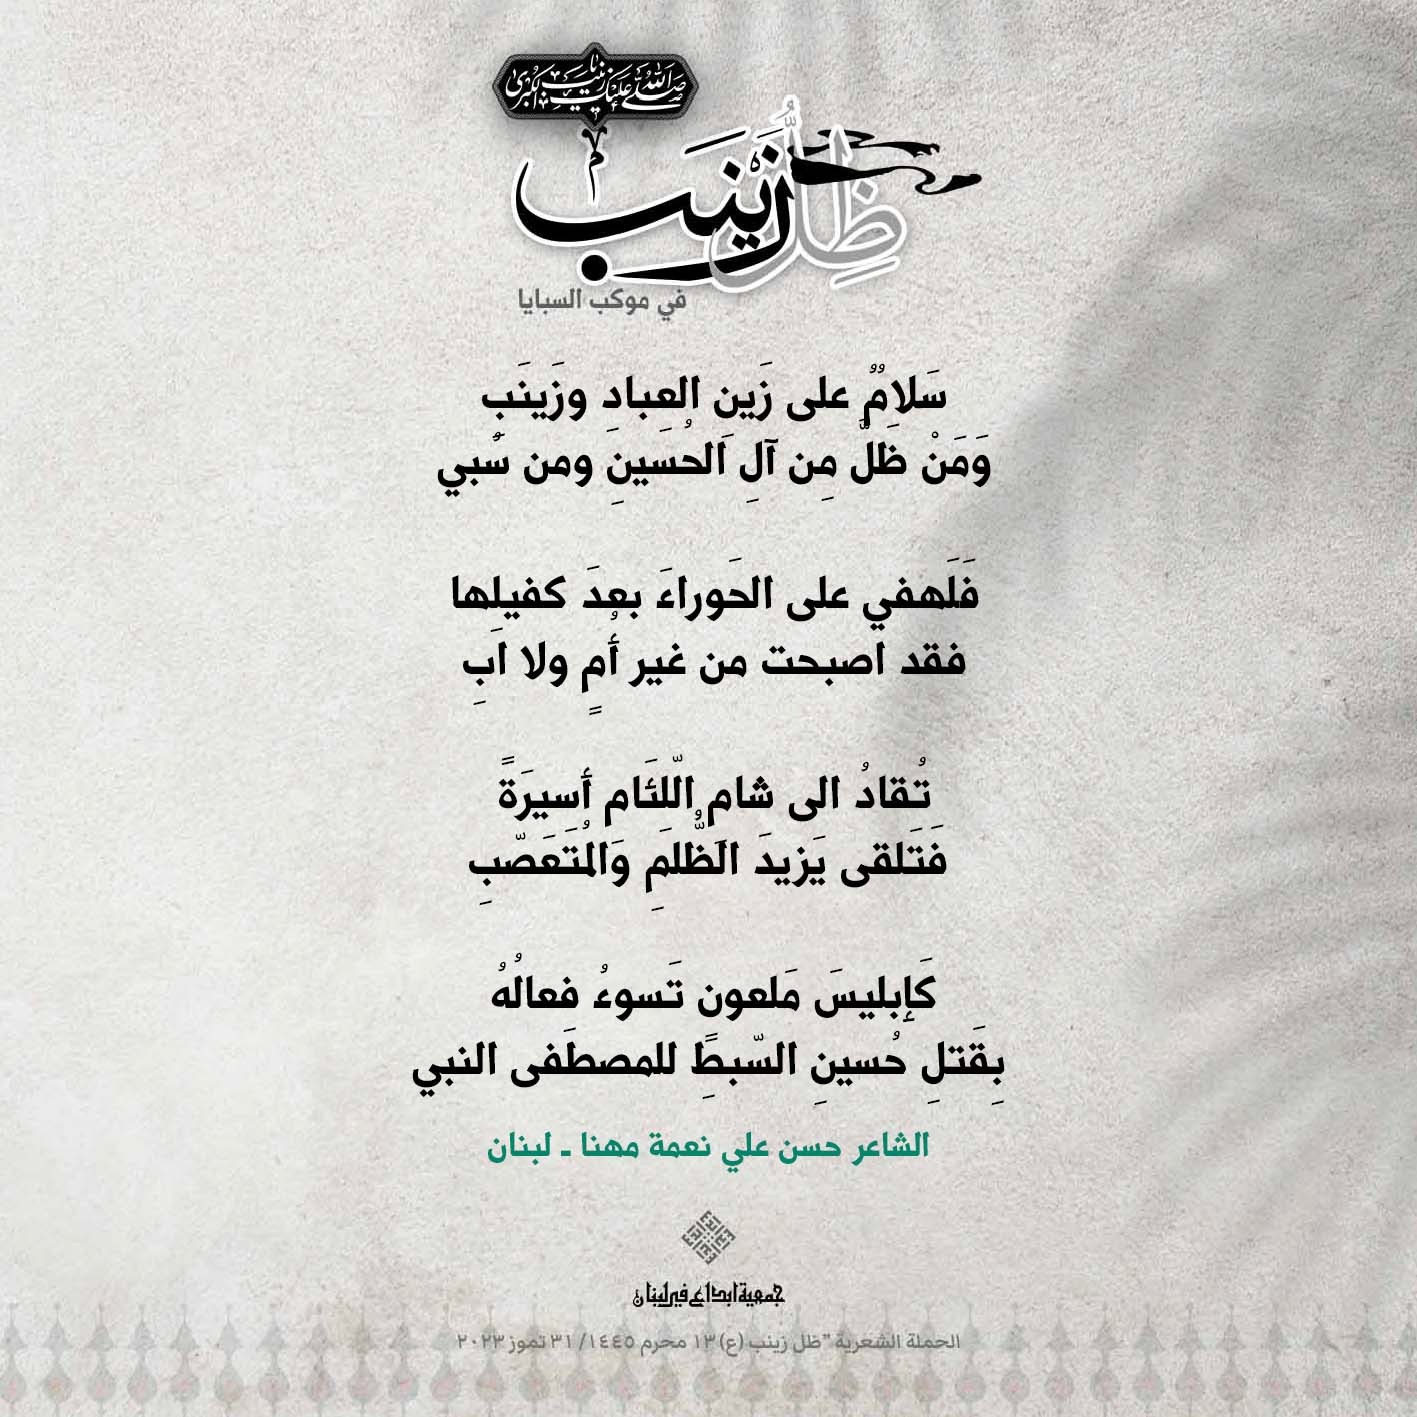 صلی الله علیک یا زینب الکبری
ظِلُّ زَيْنَب
في موكب السبايا
سَلامٌ على زَينِ العبادِ وزَينَبِ
وَمَنْ ظَلَّ مِن آلِ الحُسَينِ ومن سُبي
فَلَهفي على الحَوراءَ بعدَ كفيلِها
فقد اصبحت من غير أُمٍ ولا اَبِ
تُقادُ الى شامِ الّلئَام أَسيرَةً
فَتَلقى يَزيدَ الَظُّلمِ وَالمُتَعَصّبِ
كَإبليسَ مَلعون تَسوءُ فعالُهُ
بِقَتلِ حُسينِ السّبطِ للمصطَفى النبي
الشاعر حسن علي نعمة مهنا ـ لبنان
جمعية ابداع في لبنان
الحملة الشعرية "ظل زينب (ع) ١٣ محرم ١٤٤٥/ ٣١ تموز ٢٠٢٣